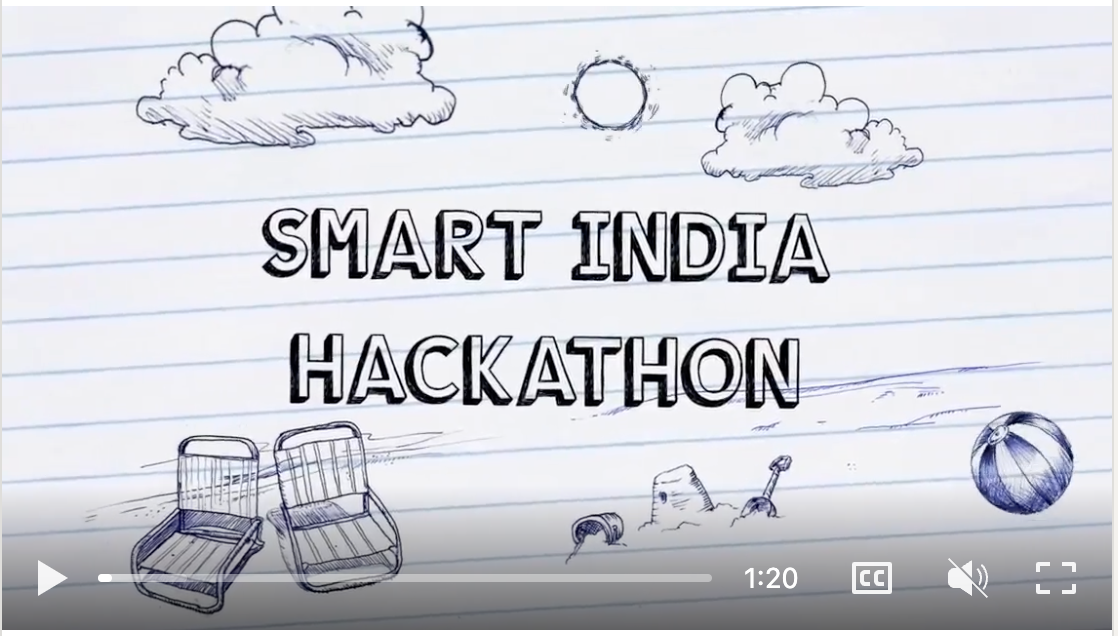 SMART INDIA
HACKATHON
1:20
CC